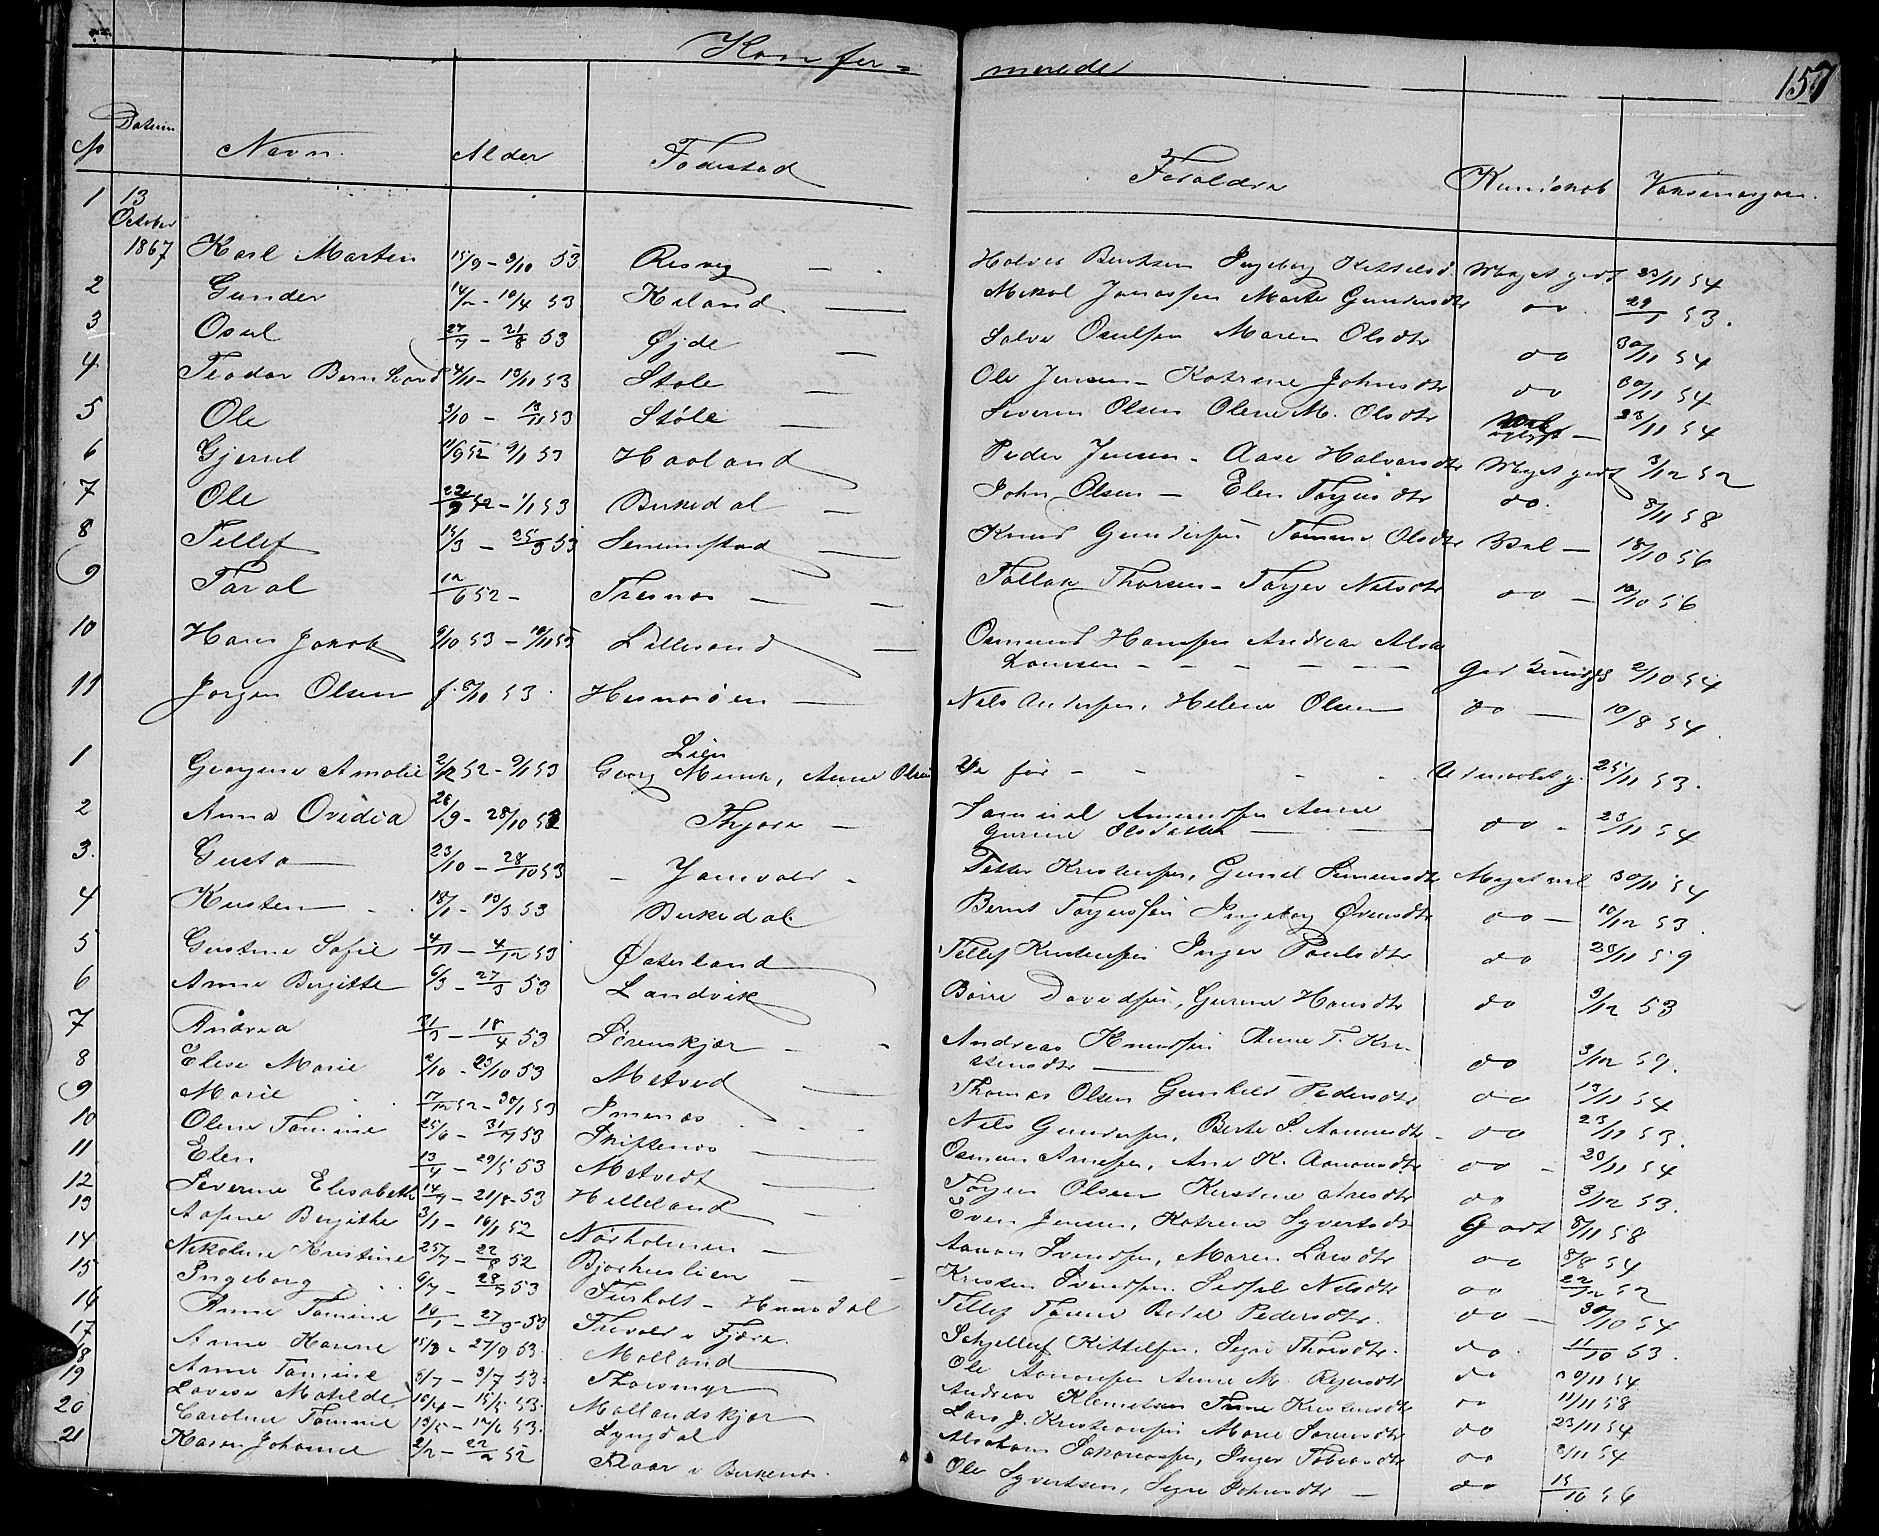 Konfer= merede 157
No Datum Navn. Alder Fodested Foroldre Kundskab Vaksinasjon.
1 13 October 1867 Karl Marten 15/9 - 9/10 53 Resvig — Halvor Bentsen Ingeborg Kittelsd. Meget godt 23/11 54
2 Gunder 14/2 - 10/4 53 Kiland — Mikal Jonassen Marte Gundersdtr do 29/1 53.
3 Osul 27/7 - 21/8 53 Øjde — Salve Osulsen Maren Olsdtr do 30/11 54
4. Teodor Bernhard 4/11 - 13/11 53 Støle — Ole Jensen - Katrine Johnsdtr do 30/11 54
5 Ole 3/10 - 13/11 53 Støle — Severin Olsen Olene M. Olsdtr 23/11 54
6 Gjerul 11/9 52 9/1 53 Haaland Peder Jensen - Aase Halvorsdtr Meget godt 3/12 52
7 Ole 22/9 52 - 1/1 53 Birkedal — John Olsen — Elen Torjusdtr do. 8/11 58
8 Tellef 15/3 - 25/3 53 — Knud Gundersen Tomine Olsdtr Vel — 18/10 56
9 Taral 12/6 52 - Tresnes — Tallak Thorsen - Torjer Nilsdtr do — 10/10 56
10 Hans Jakob 9/10 53 - 19/11 53 Lillesand — Osmund Hansen Andrea
Lourisen - - - - God Kundsk 2/10 54
11 Jørgen Olsen f. 8/10 53. Hesnesøen — Nils Andersen, Helene Olsen do — 19/8 54.
1 Georgine Amalie 2/12 52 - 9/1 53 Lien
Georg Munk, Anne Olsen Se før - - Udmærket g. 25/11 53.
2 Anna Ovidia 26/9 - 28/10 52 Thjore — Samuel Amundsen Anne
Gurine Olsdatter — do - 23/11 54
3. Gusta — 23/10 - 28/10 53 - Jonevold - Petter Kristensen, Gunild Simonsdtr Meget vel 30/11 54
4 Kirsten - . 18/1 - 13/3 53 Birkedal. Bernt Torjussen Ingeborg Øvensdtr do — 10/12 53.
5 Gustine Sofie 4/11 - 4/12 53 Østerland Tellef Kristensen Inger Paulsdtr do 23/11 59
6 Anne Birgitte 6/3 - 27/3 53 Landvik Børre Davidsen, Gurine Hansdtr do 3/12 53
7 Andrea 31/3 - 18/4 53 Sørenskjær - Andreas Knudsen Anne T. Kri-
stensdtr — do 3/12 59.
8 Elise Marie 2/10 - 23/10 53 Metved — Thomas Olsen Gunhild Pedersdtr do 13/11 54
9 Marie 17/12 52 - 30/1 53 Imenes Nils Gundersen, Berte S. Aanundsdtr - do 23/11 53.
10 Olene Tomine 25/6 - 31/7 53 Skiftenes Osmun Arnesen, Ane K. Aanonsdtr do - 20/11 54
11 Elen 13/4 - 29/5 53 Metvedt — Torjus Olsen Kirstine Aresdtr do 3/12 53.
12 Severine Elisabeth 14/7 - 21/8 - 53 Helleland — Even Jensen, Katrine Syvertsdtr Godt 8/11 58
13 Birgithe 3/1 - 16/1 52 Nørholmen — Aanon Svendsen, Maren Larsdtr do 8/8 54
14 Nikoline Kristine 25/7 - 22/8 52 Bjorkuslien — Kristen Svendsen Sidsel Nilsdtr do 22/12 52
15 Ingeborg 9/7 - 28/7 53 Furholt - Tellef Bertel Pedersdtr. do — 30/10 54
16 Anne Tomine - 27/3 - 53 Trevold i Fjære. Schjellef Kittelsen, Segri Thorsdtr. do 11/10 53.
17 Anne Karine 15/8 - 27/9 53. Molland — Ole Aanonsen Anne M. Rejersdtr do 20/11 54
18 Anne Tomine 5/7 - 3/7 53. Thorsmyr Andreas Klemetsen Tine Kristensdtr do 11/11 58
19 Lovise Matilde 10/4 - 15/5 53. Mollandskjær Lars J. Kristiansen Marie Sørensdtr do 23/11 54
20 Caroline Tomine 13/5 - 12/6 53. Lyngdal Abraham Sakariassen, Inger Tobiasdtr do 2/11 54
21 Karen Johanne 2/2 - 22/2 52 Flaar i Birkenes. Ole Syvertsen, Segri Johnsdtr — do 15/10 56